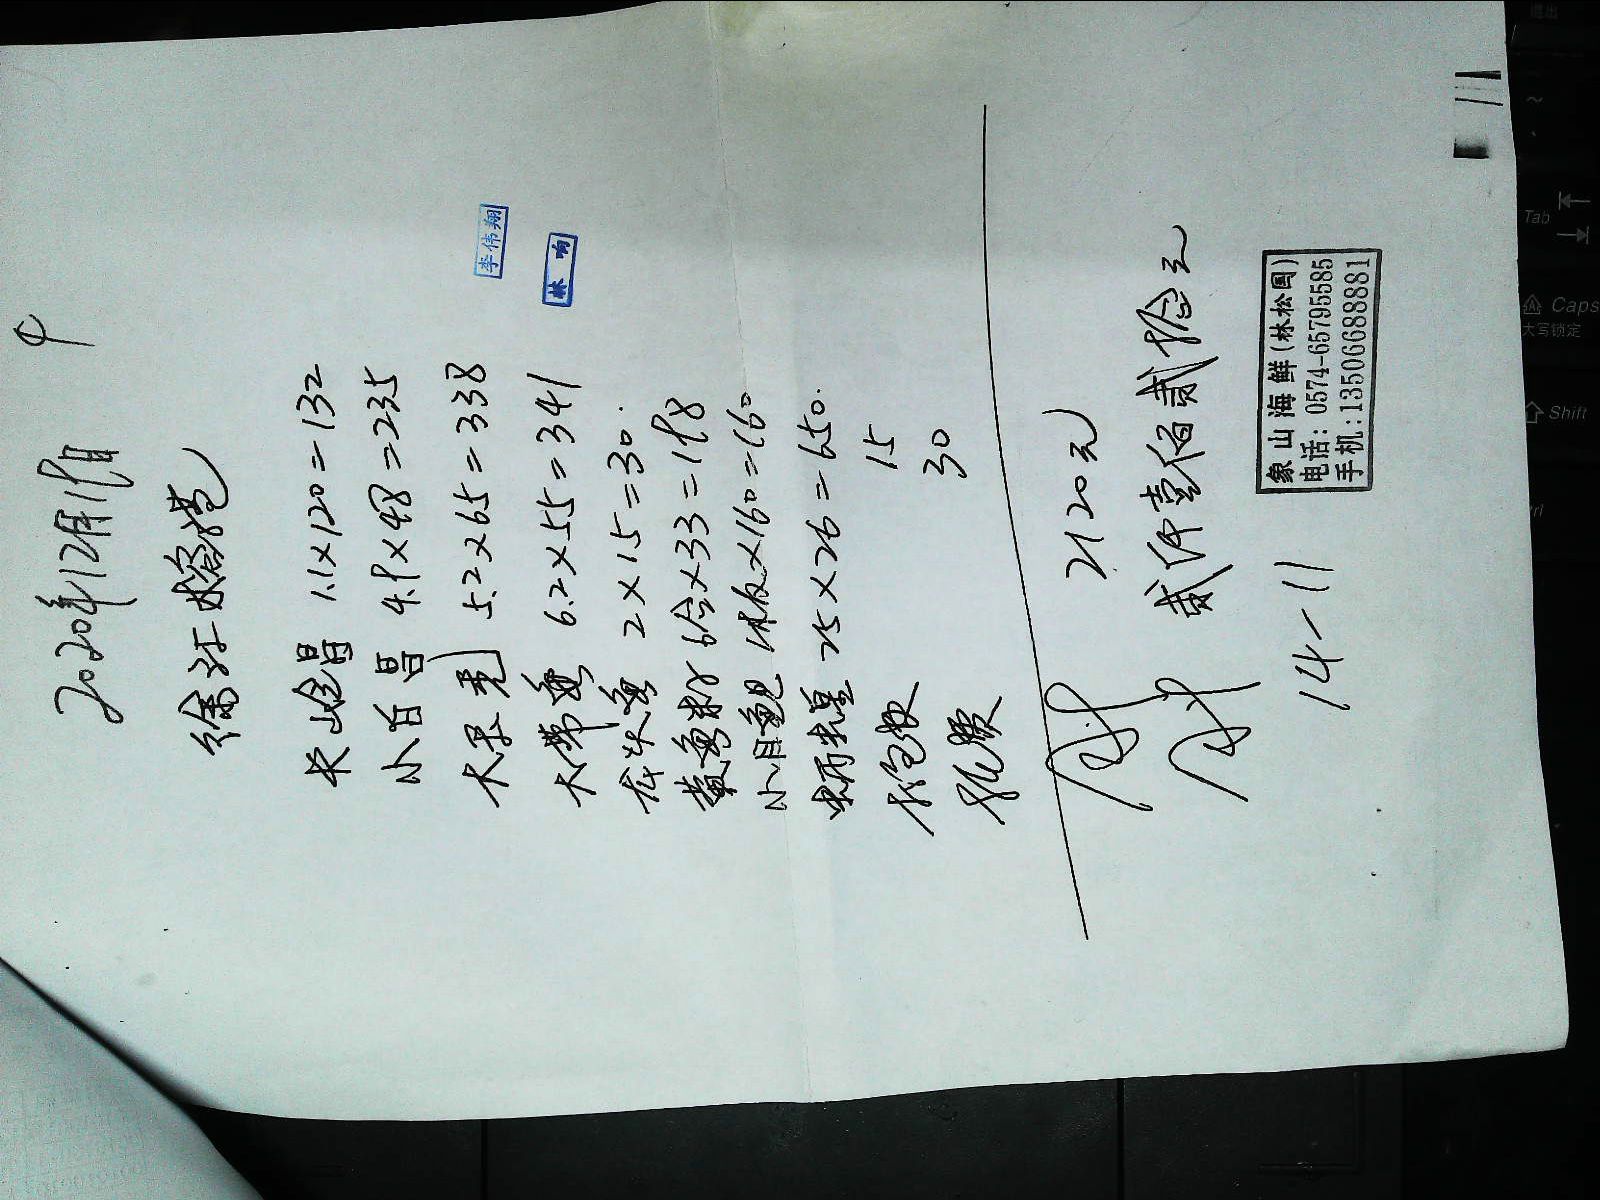 中
2020年12月19日
徐江 水容港
长山鲳 1.1×120=132
小白鲳 4.9×48=235
大黑 5.2×65=338
大带鱼 6.2×55=341
龙头鱼 2×15=30.
黄鱼 6合×33=198
小目鱼 1板×160=160
25×26=650.
包 15
30
2120元
贰仟壹佰贰拾元
14-11
李伟翔
林响
象山海鲜(林松国)
电话: 0574-65795585
手机:13506688881
Tab
Caps
大写锁定
Shift